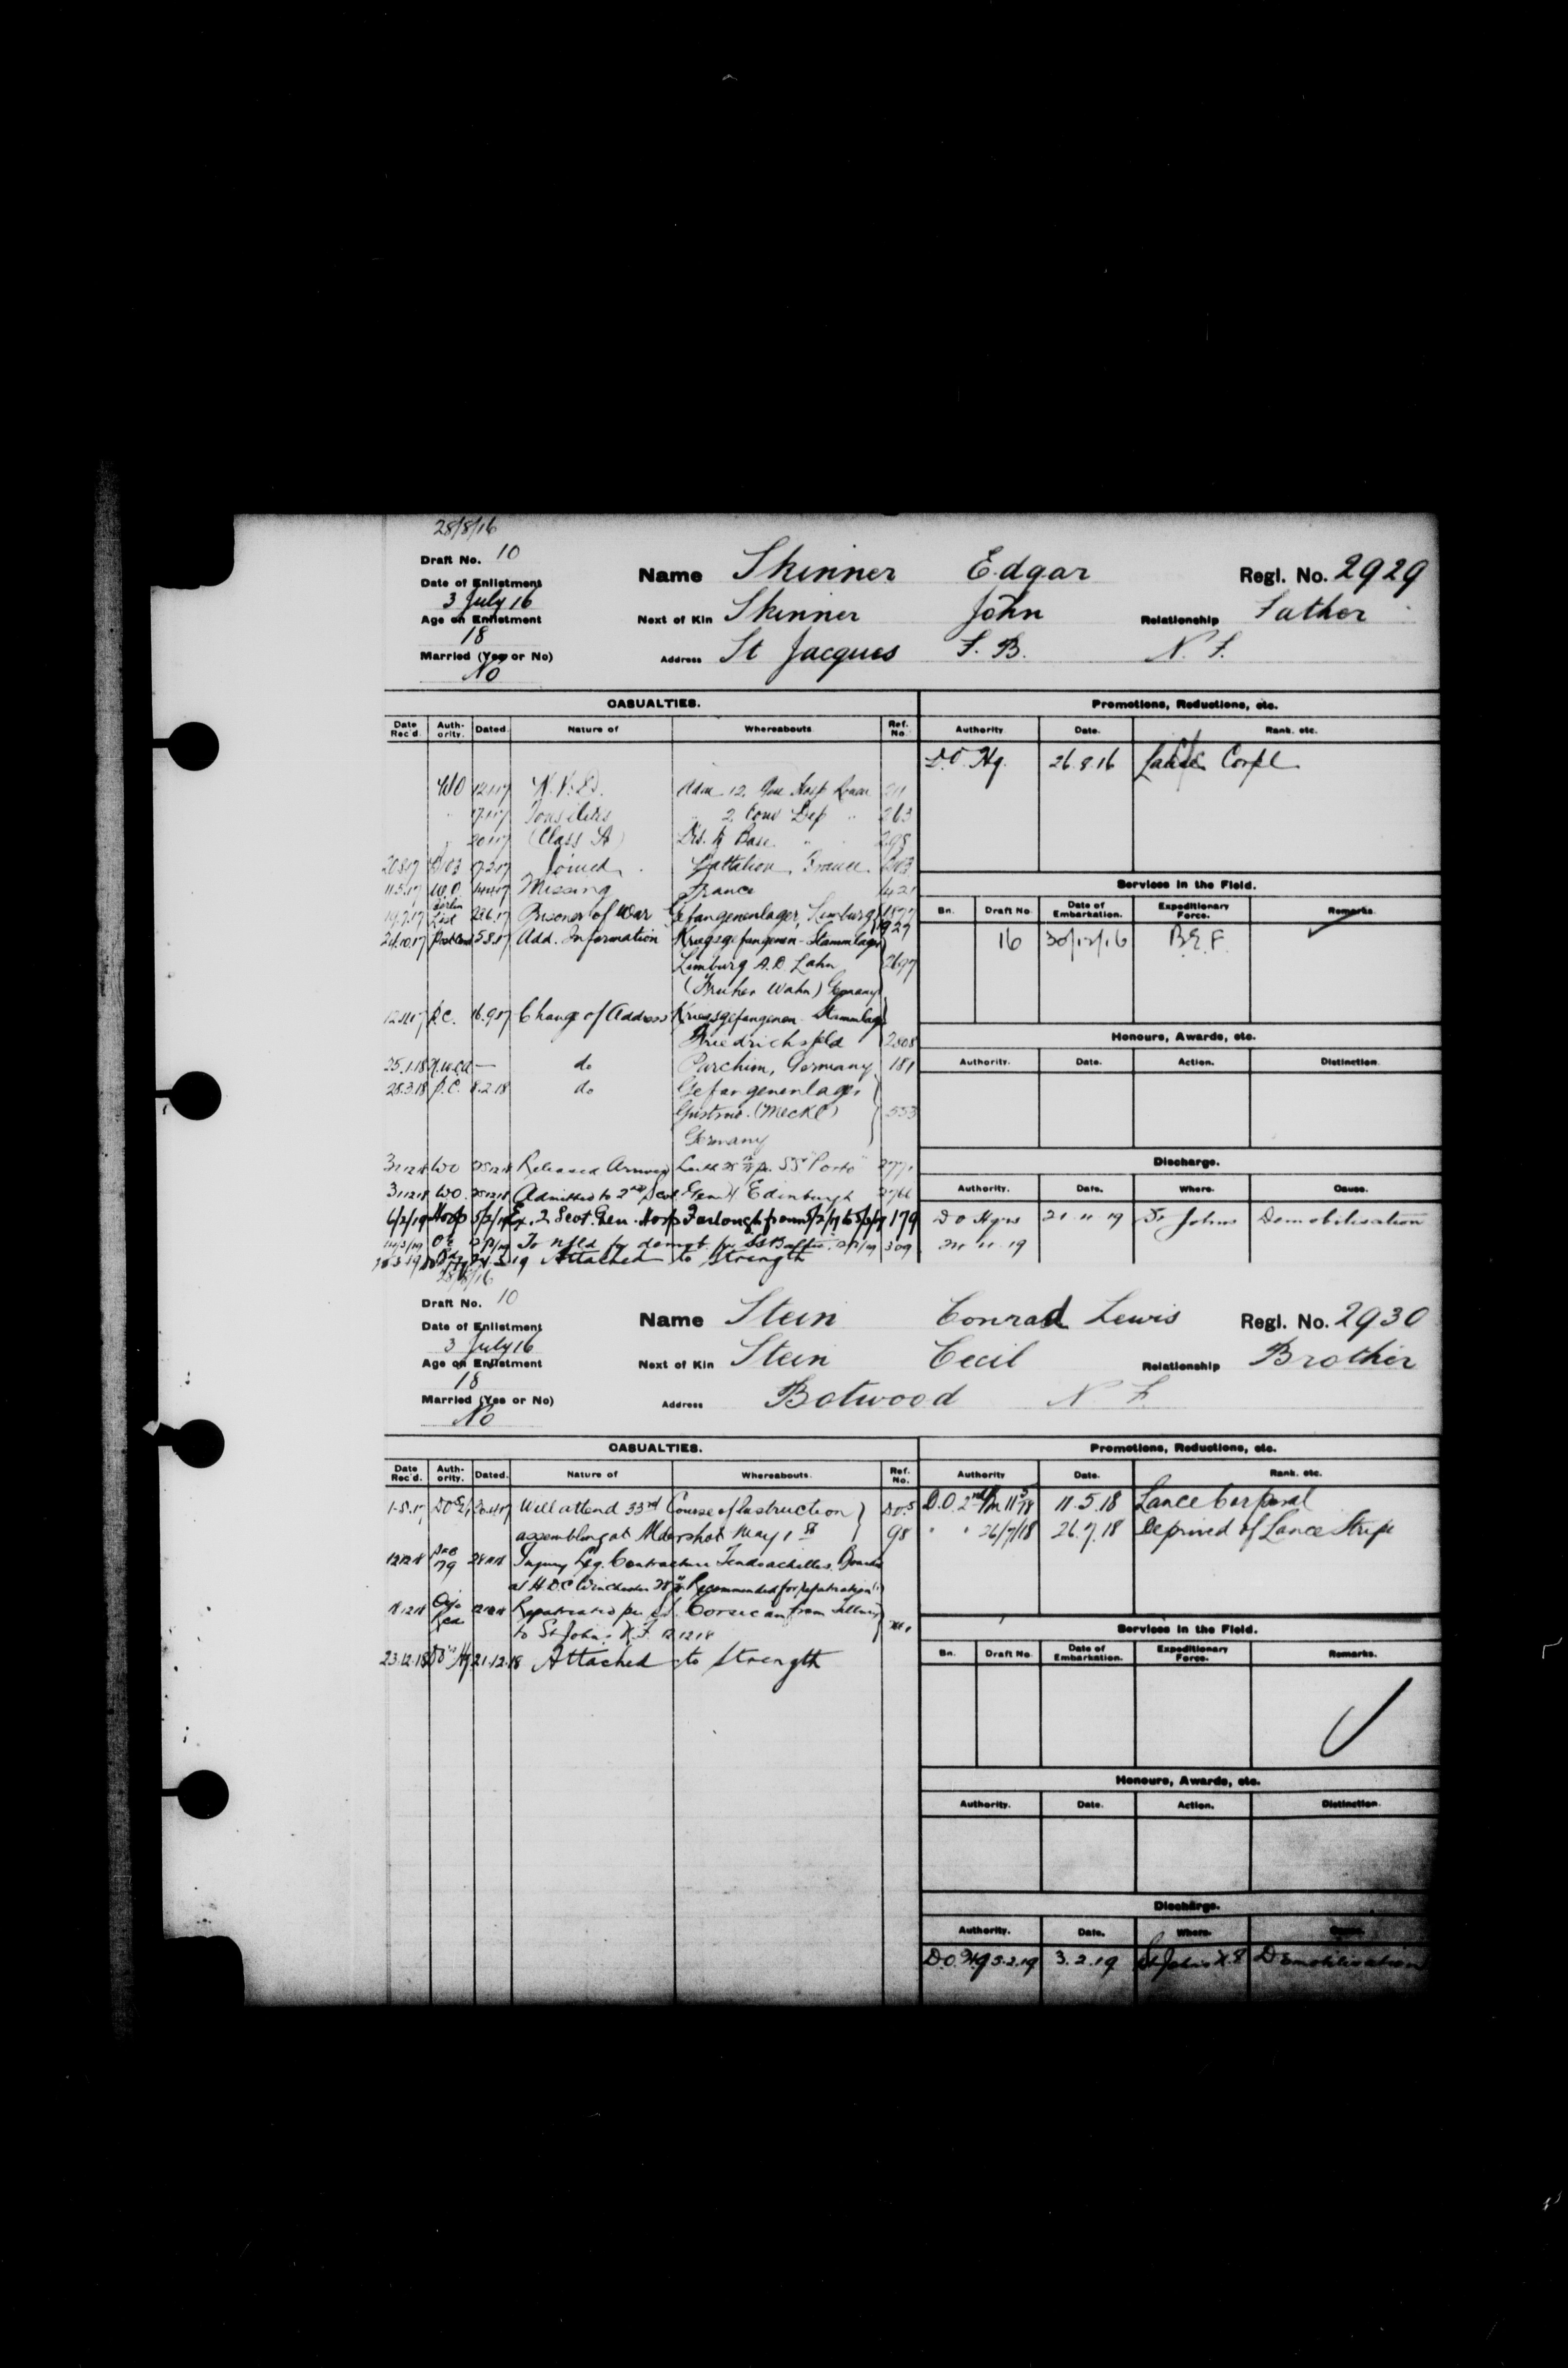 28/8/16
Draft No. 10
Date of Enlistment
3 July 16
Age on Enlistment
18
Married (Yes or No)
No
Name Skinner Edgar Regl. No. 2929
Next of Kin Skinner John Relationship Father
Address St Jacques F. B. N. F.
CASUALTIES.
Date Rec'd. Auth-ority. Dated. Nature of Whereabouts. Ref. No.
WO 12.1.17 N.Y.D. Adm 12 Gen Hosp Rouen 211
17.1.17 Tonsilitis " 2 Conv Dep " 263
20.1.17 (Class A) Dis. to Base " 298
Joined Battalion, France
11.5.17 W.O. Missing France 421
14.7.17 Berlin List Prisoner of War Gefangenenlager, Limburg 1877
1929
Post Card 5.8.17 Add. Information Kriegsgefangenen-Stammlager
Limburg A.D. Lahn
(Fruher Wahn) Germany
P.C. 16.9.17 Change of Address Kriegsgefangenen Stammlager
Friedrichsfeld 2808
25.1.18 — do Parchim, Germany 181
28.3.18 P.C. 8.2.18 do Gefangenenlager
Gustrow (Meckl) 553
Germany
31.12.18 WO Released Arrived Leith pr. SS "Porto"
31.12.18 WO. Admitted to 2nd Scot Gen H Edinburgh
6/2/19 Hosp 5/2/19 Ex. 2 Scot. Gen. Hosp Furlough from 179
To Nfld for demob. per SS Baltic 309
Attached to Strength
Promotions, Reductions, etc.
Authority. Date. Rank. etc.
D.O. Hq. 26.8.16 Lance Corpl
Services in the Field.
Bn. Draft No. Date of Embarkation. Expeditionary Force. Remarks.
16 30/12/16 B.E.F.
Honours, Awards, etc.
Authority. Date. Action. Distinction.
Discharge.
Authority. Date. Where. Cause.
D O Hqrs 21 11 19 St Johns Demobilisation
24 11 19
28/8/16
Draft No. 10
Date of Enlistment
3 July 16
Age on Enlistment
18
Married (Yes or No)
No
Name Stein Conrad Lewis Regl. No. 2930
Next of Kin Stein Cecil Relationship Brother
Address Botwood N F.
CASUALTIES.
Date Rec'd. Auth-ority. Dated. Nature of Whereabouts. Ref. No.
1.5.17 Will attend 33rd Course of Instruction D.O.S
assembling at Aldershot May 1st 98
12.12.18 79 Injury Leg. Contracture Tendo achilles. Boarded
at H.D.C Winchester Recommended for repatriation
Repatriated per S.S. Corsican from Tilbury
to St Johns N.F. 12.12.18
23.12.18 21.12.18 Attached to Strength
Promotions, Reductions, etc.
Authority Date. Rank. etc.
D.O. 2nd Bn 11/5/18 11.5.18 Lance Corporal
" " 26/7/18 26.7.18 Deprived of Lance Stripe
Services in the Field.
Bn. Draft No. Date of Embarkation. Expeditionary Force. Remarks.
Honours, Awards, etc.
Authority. Date. Action. Distinction.
Discharge.
Authority. Date. Where. Cause.
D.O. Hq 3.2.19 3.2.19 St Johns N.F Demobilisation